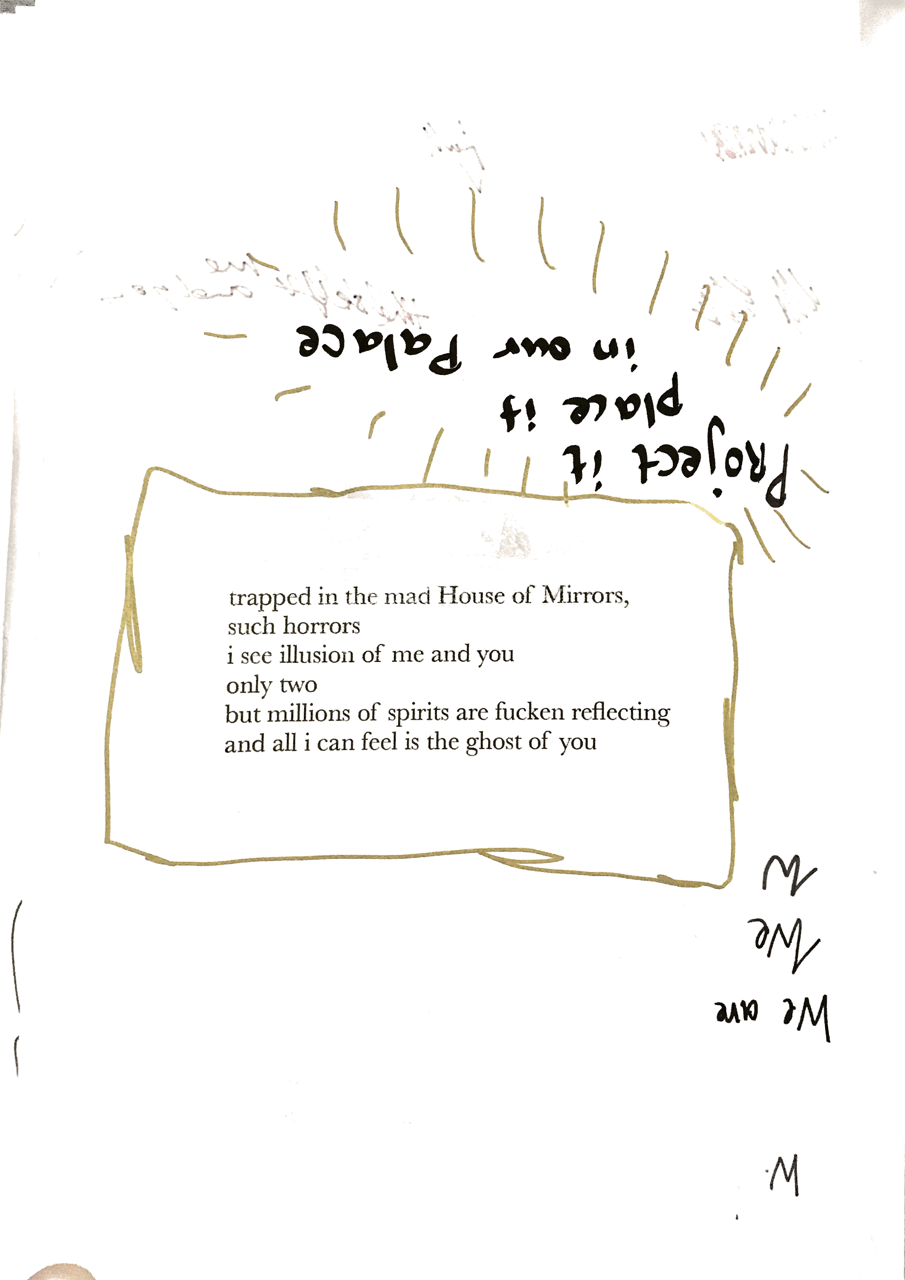 Project it
place it
in our Palace
trapped in the mad House of Mirrors,
such horrors
i see illusion of me and you
only two
but millions of spirits are fucken reflecting
and all i can feel is the ghost of you
W
We
We are
W